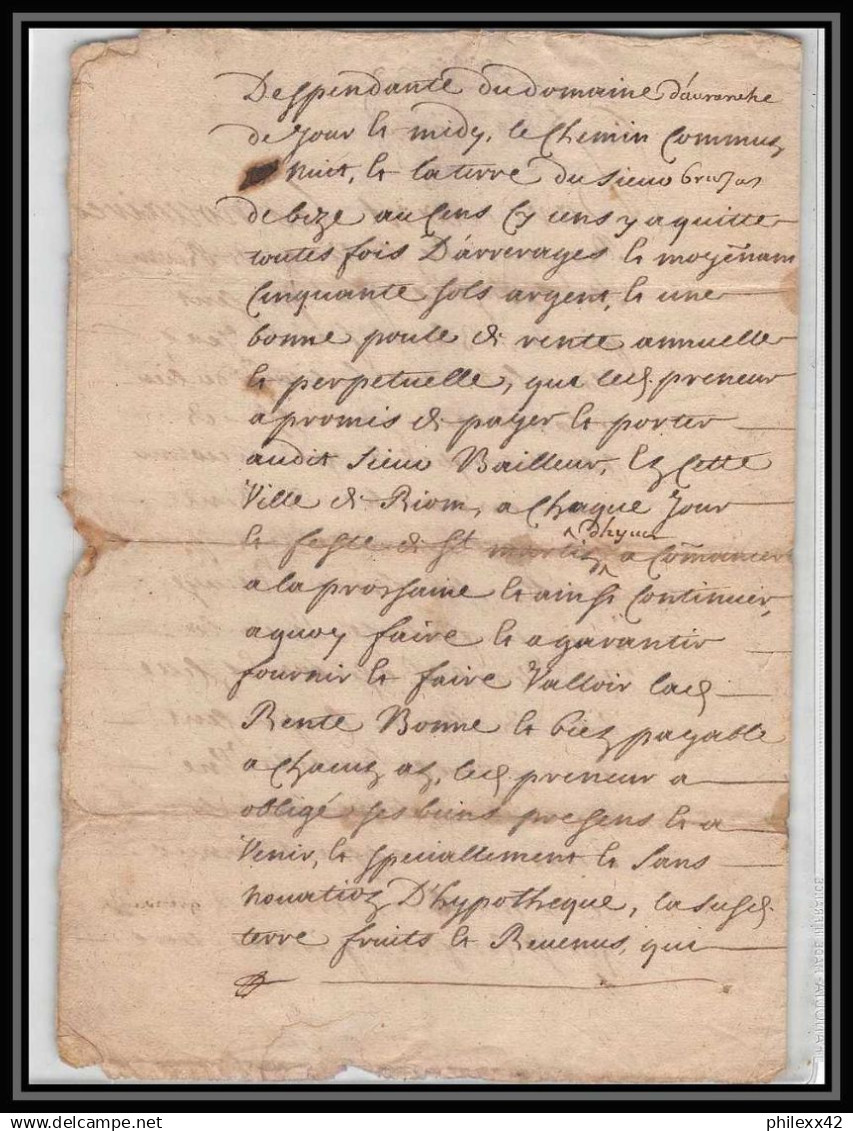 Despendante du domaine d'avranche
de jour & midy, le chemin commun
nuit, & la terre du sieur
de bize au cens y a quitte
touttes fois D'arrerages & moyeñant
Cinquante sols argent, & une
bonne poule de rente annuelle
& perpetuelle, que led. preneur
a promis de payer & porter
audit sieur Bailleur, en cette
Ville de Riom, a chaque jour
& feste de st martin d'hyver a com̃ancer
a la prochaine & ainsi continuer,
a quoy faire & a garantir
fournir & faire Valloir lad.
Rente Bonne & bien payable
a chacun an, led. preneur a
obligé ses biens presens & a
Venir, & speciallement & sans
novation D'hypotheque, la susd.
terre fruits & Revenus, qui
philexx42